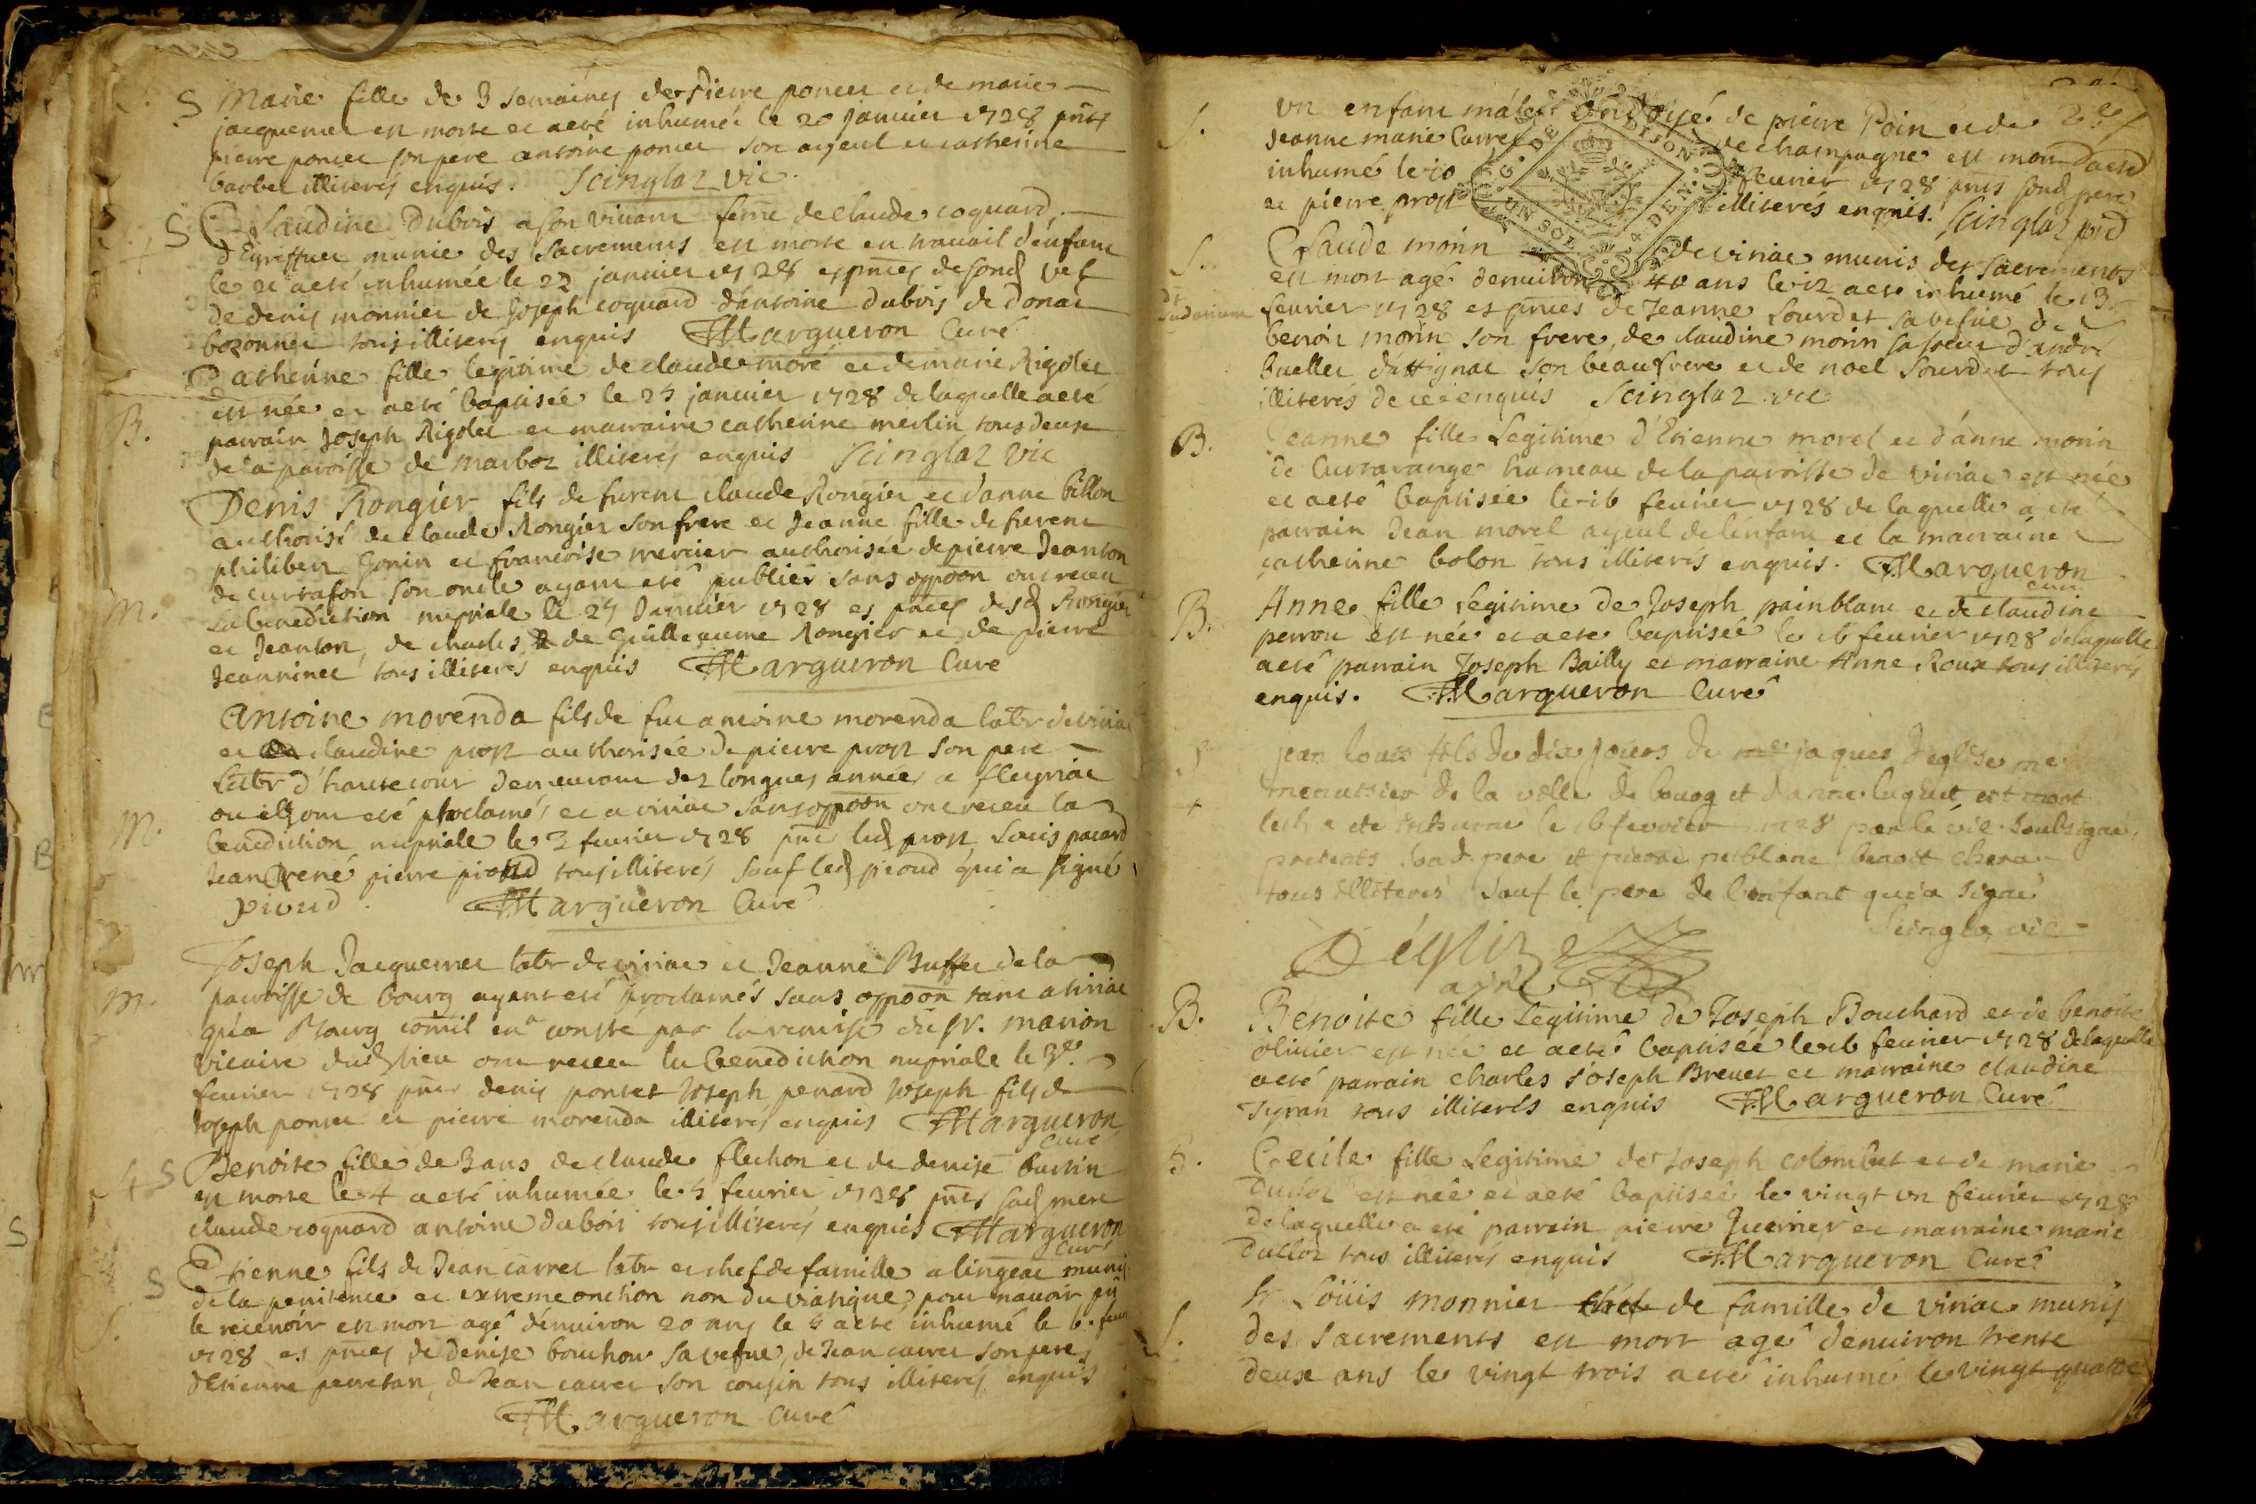 S Marie fille de 3 semaines de Pierre poncet et de marie
jacquemet est morte et a eté inhumée le 20 janvier 1728 pnts
pierre poncet son pere antoine poncet son ayeul et catherine
barbet illiterés enquis. Scinglaz vic.
S Claudine Dubois a son vivant feme de claude coquard
d'Egreffuet munie des sacrements est morte en travail d'enfant
le 21 a eté inhumée le 22 janvier 1728 es pnces desond vef
de denis monnier de Joseph coquard d'antoine dubois de donat
bozonnet tous illiterés enquis FMargueron Curé
Catherine fille legitime de claude moré et de marie Rigolet
B. est née et a eté baptisée le 25 janvier 1728 de laquelle a eté
parrain Joseph Rigolet et marraine catherine merlin tous deux
de la paroisse de marboz illiterés enquis Scinglaz Vic
Denis Rongier fils de furent claude Rongier et d'anne billon
authorisé de claude Rongier son frere et Jeanne fille de furent
philibert Gonin et francoise mercier authorisée de pierre Jeanton
de curtafon son oncle ayant eté publiés sans oppoon ont receu
M. la benediction nuptiale le 27 Janvier 1728 es pnces desd Rongier
et Jeanton, de charles, de Guilleaume Rongier et de pierre
Jeanninet tous illiterés enquis FMargueron Curé
Antoine morenda fils de fut antoine morenda labr de viriac
et claudine prost authorisée de pierre prost son pere
labr d'hautecour demeurant dez longues années a fleyriac
ou ils ont eté proclamés et a viriac sans oppoon ont receu la
M. benediction nuptiale le 3 fevrier 1728 pnt led prost Louis pacard
Jean rené pierre pioud tous illiterés sauf led pioud qui a signé
pioud. FMargueron Curé
Joseph Jacquemet labr de viriac et Jeanne Buffet de la
M. paroisse de bourg ayant eté proclamés sans oppoon tant a viriac
qu'a Bourg comil en a consté par la remise du Sr. marion
vicaire dud lieu ont receu la benediction nuptiale le 3e
fevrier 1728 pnts denis poncet Joseph penard Joseph fils de
Joseph poncet et pierre morenda illiterés enquis FMargueron
Curé
S Benoite fille de 3 ans de claude flechon et de denise burtin
est morte le 4 a eté inhumée le 5 fevrier 1728 pnts sad mere
claude coquard antoine dubois tous illiterés enquis FMargueron
Curé
S Etienne fils de Jean carret labr et chef de famille a lingeat munis
de la penitence et extreme onction non du viatique, pour n'avoir pu
le recevoir est mort agé d'environ 20 ans le 5 a eté inhumé le 6. fevr
1728 es pnces de denise bouchou sa vefue, de Jean carret son pere,
d'Etienne perretan, de Jean carret son cousin tous illiterés enquis
FMargueron Curé
S. Un enfant mâle ondoyé de pierre Poin et de
Jeanne marie Carre de champagne est mort a eté
inhumé le 10 fevrier 1728 pnts sond pere
et pierre prost illiterés enquis. Scinglaz prd
S. Claude morin de viriac munis des sacrements
est mort agé d'environ 40 ans le 12 a eté inhumé le 13
fevrier 1728 es pnces de Jeanne Sourdet sa vefue de
benoit morin son frere, de claudine morin sa soeur d'andré
buellet d'attignat son beaufrere et de noel Sourdet tous
illiterés de ce enquis Scinglaz vic
B. Jeanne fille Legitime d'Etienne morel et d'anne morin
de Curtarange hameau de la paroisse de viriac est née
et a eté baptisée le 16 fevrier 1728 de laquelle a eté
parrain Jean morel ayeul de l'enfant et la marraine
catherine bolon tous illiterés enquis. FMargueron
curé
B. Anne fille Legitime de Joseph painblanc et de claudine
perrou est née et a eté baptisée le 16 fevrier 1728 de laquelle
a eté parrain Joseph Bailly et marraine Anne Roux tous illiterés
enquis. FMargueron Curé
jean louis fils de dix jours de jaques deglise
menuisier de la ville de bourg et d'anne luguet est mort
a ete inhume le 16 fevrier 1728 par le vic. soubsigné
presents led. pere et pierre pinblanc benoit
tous illiteres sauf le pere de l'enfant qui a signé
Scingla vic
Déglize
B. Benoite fille Legitime de Joseph Bouchard et de benoite
olivier est née et a eté baptisée le 16 fevrier 1728 de laquelle
a eté parrain charles Joseph Brevet et marraine claudine
Tyran tous illiterés enquis FMargueron Curé
B. Cecile fille Legitime de Joseph colomblet et de marie
ducloz est née et a eté baptisée le vingt un fevrier 1728
de laquelle a eté parrain pierre Guerrier et marraine marie
ducloz tous illiterés enquis FMargueron Curé
S. Sr Loüis monnier chef de famille de viriac munis
des sacrements est mort agé d'environ trente
deux ans le vingt trois a eté inhumé le vingt quatre